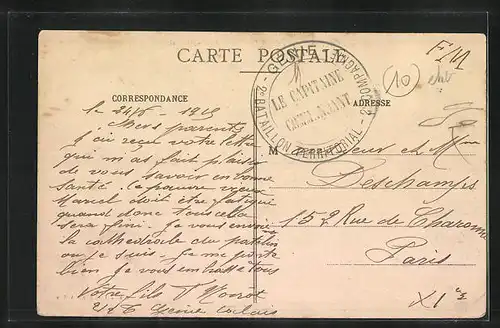 CARTE POSTALE
F M
GÉNIE
2e BATAILLON TERRITORIAL
LE CAPITAINE
COMMANDANT
10
CORRESPONDANCE
ADRESSE
Mers parents
j'ai recu votre lettre
qui m as fait plaisir
de vous savoir en bonne
santé. le pauvre vieux
Marcel doit être fatigué
quand donc tous cela
sera fini. je vous envoie
la cathédrale du
ou je suis. je me porte
bien je vous embrasse tous
Votre fils
M
et Mme
Deschamps
152 Rue de Charonne
Paris
XI e